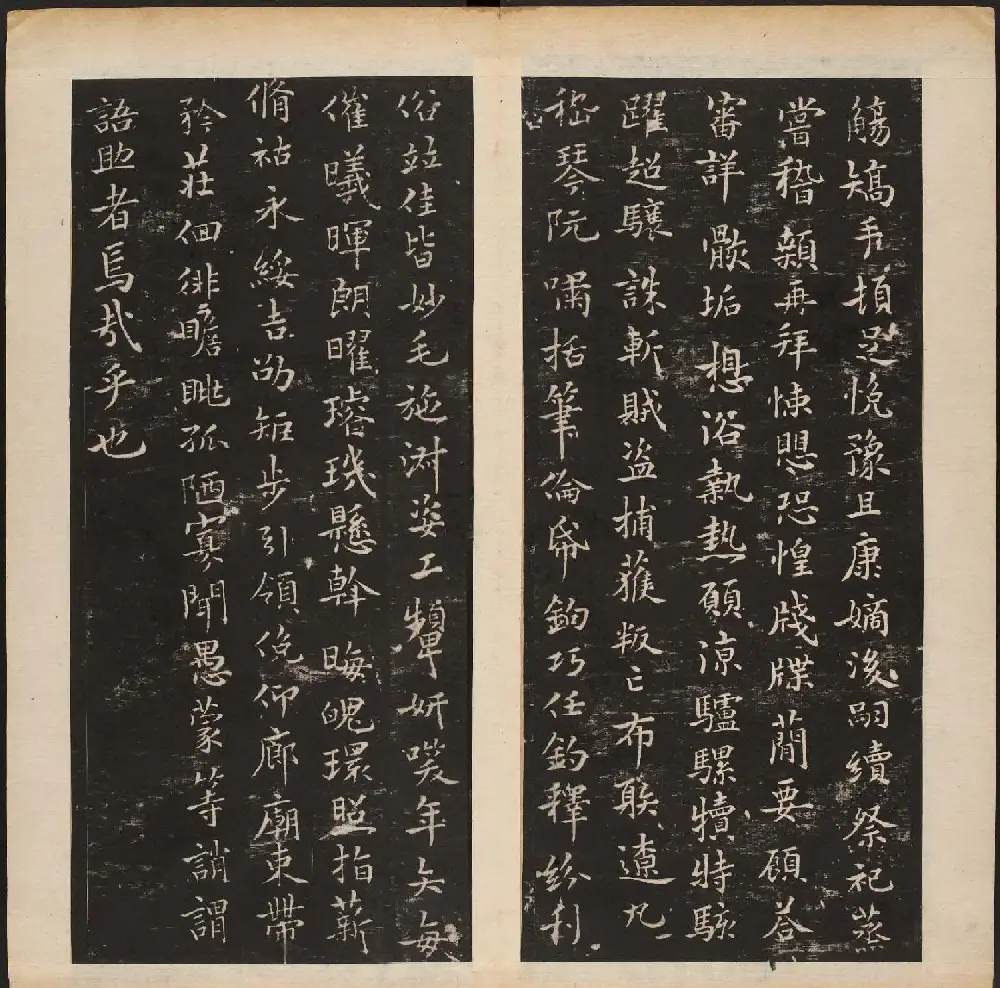 觴矯手頓足悅豫且康嫡後嗣續祭祀蒸
嘗稽顙再拜悚懼恐惶牋牒簡要顧荅
審詳骸垢想浴執熱願涼驢騾犢特駭
躍超驤誅斬賊盜捕獲叛亡布射遼丸
嵇琴阮嘯恬筆倫紙鈞巧任釣釋紛利
俗竝佳皆妙毛施淑姿工顰妍笑年矢每
催曦暉朗曜璿璣懸斡晦魄環照指薪
脩祜永綏吉劭矩步引領俛仰廊廟束帶
矜莊佪徘瞻眺孤陋寡聞愚蒙等誚謂
語助者焉哉乎也